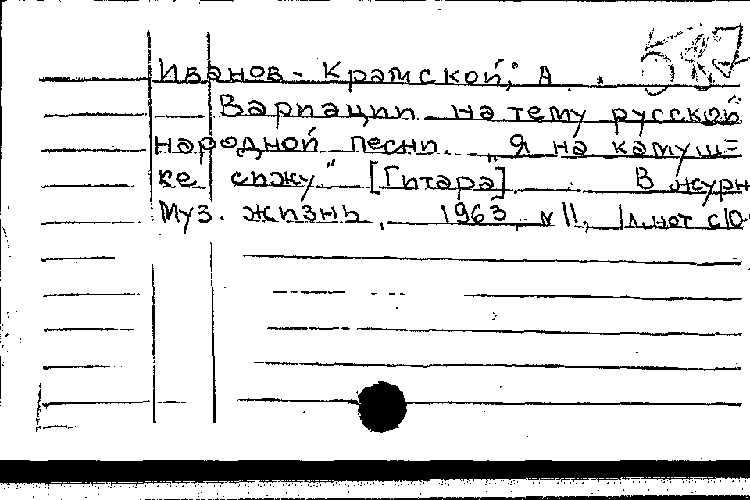 587
Иванов-Крамской, А.
Вариации на тему русской
народной песни „Я на камуш=
ке сижу" [Гитара]. В журн
Муз. жизнь, 1963, № 11, 1 л. нот с 10